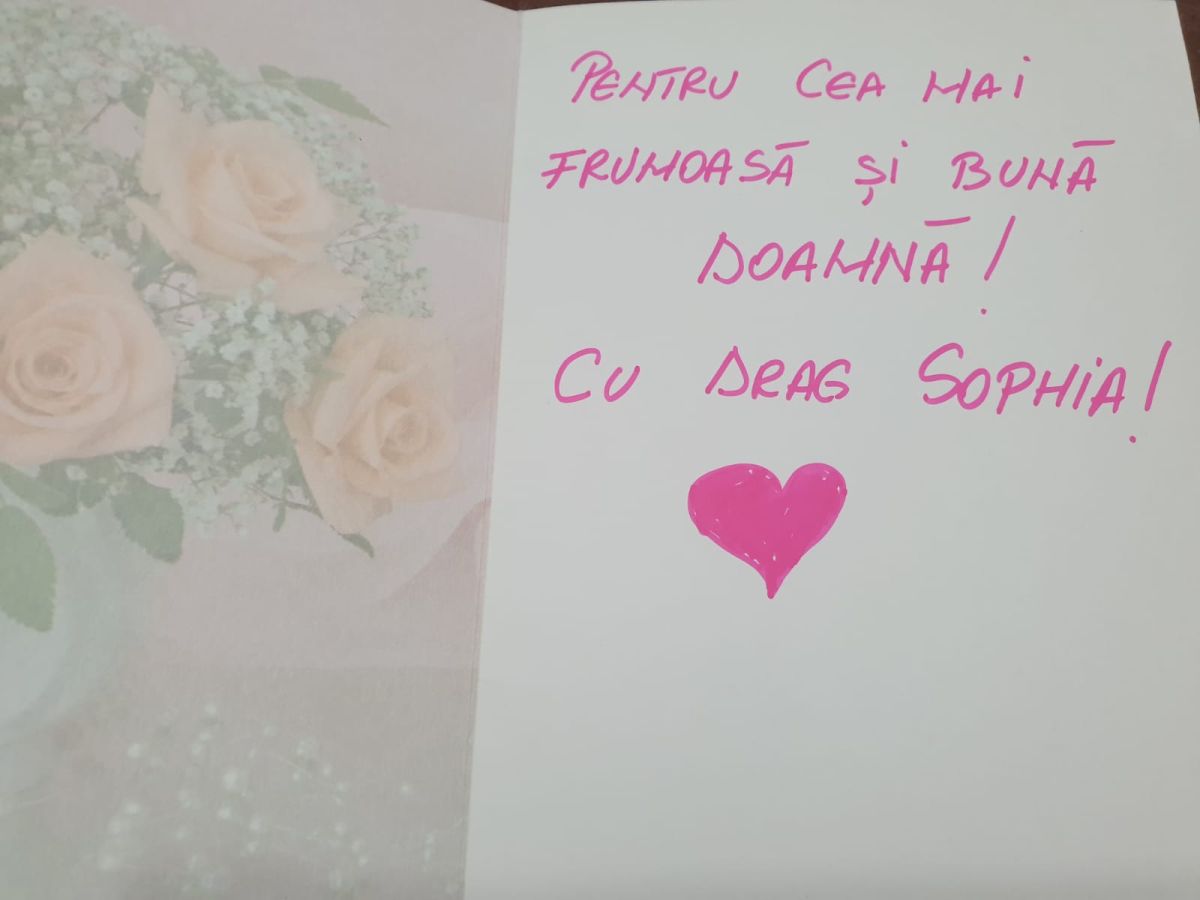 PENTRU CEA MAI
FRUMOASĂ ȘI BUNĂ
DOAMNĂ!
CU DRAG SOPHIA!